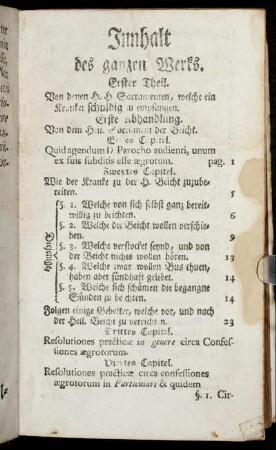 Innhalt
des ganzen Wercks.
Erster Theil.
Von denen H. H. Sacramenten, welche ein
Krancker schuldig zu empfangen.
Erste Abhandlung.
Von dem Heil. Sacrament der Beicht.
Erstes Capitel.
Quid agendum D. Parocho audienti, unum
ex suis subditis esse ægrotum. pag. 1
Zweytes Capitel.
Wie der Krancke zu der H. Beicht zuzube-
reiten. 5
§. 1. Welche von sich selbst ganz bereit-
willig zu beichten. 6
§. 2. Welche die Beicht wollen verschie-
ben. 9
§. 3. Welche verstocket seynd, und von
der Beicht nichts wollen hören. 13
§. 4. Welche zwar wollen Bus thuen,
haben aber sündhaft gelebet. 14
§. 5. Welche sich schämen die begangne
Sünden zu beichten. 14
Folgen einige Gebetter, welche vor, und nach
der Heil. Beicht zu verrichten. 23
Drittes Capitel.
Resolutiones practicæ in genere circa Confes-
siones ægrotorum.
Viertes Capitel.
Resolutiones practicæ circa confessiones
ægrotorum in Particulari & quidem
§. 1. Cir-